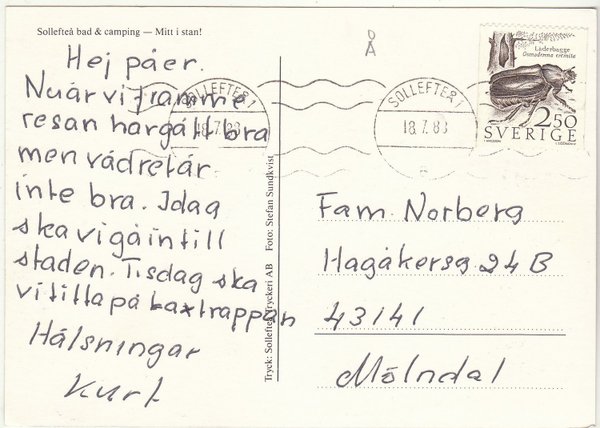 Sollefteå bad & camping — Mitt i stan!
Hej påer.
Nu är vi framme
resan har gått bra
men vädret är
inte bra. Idag
ska vi gå in till
staden. Tisdag ska
vi titta på Laxtrappan
Hälsningar
Kurt
Tryck: Sollefteå Tryckeri AB Foto: Stefan Sundkvist
D
Å
SOLLEFTEÅ 1
18.7.88
SOLLEFTEÅ 1
18.7.88
Läderbagge
Osmoderma eremita
2.50
SVERIGE
Fam. Norberg
Hagåkersg 24 B
43141
Mölndal